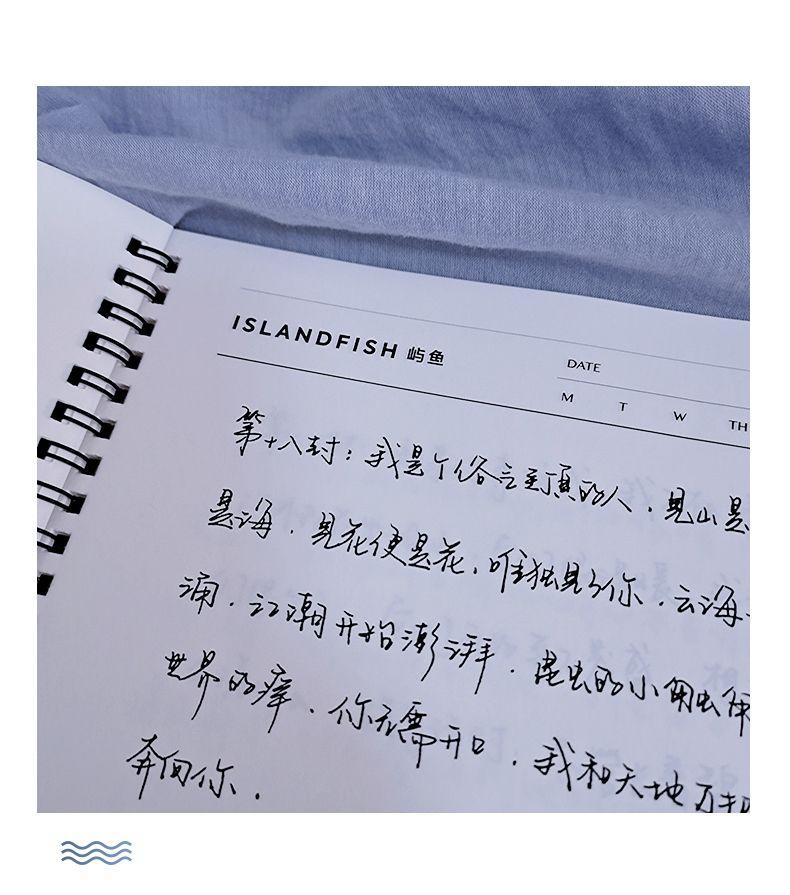 ISLANDFISH 屿鱼
DATE
M T W TH
第十八封:我是个俗之至顶的人,见山是
是海,见花便是花,唯独见了你,云海
涌,江潮开始澎湃,昆虫的小触
世界的痒,你无需开口,我和天地万
奔向你.